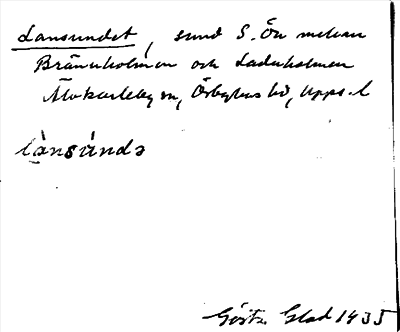 Lansundet, sund S. Ön mellan
Brännholmen och Laduholmen
Älvkarleby sn, Örbyhus hd, Upps. l
lànsúndə
Gösta Glad 1935